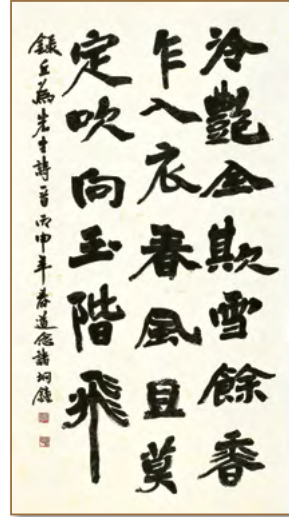 冷艷全欺雪餘香
乍入衣春風且莫
定吹向玉階飛
錄丘為先生詩一首丙申年春